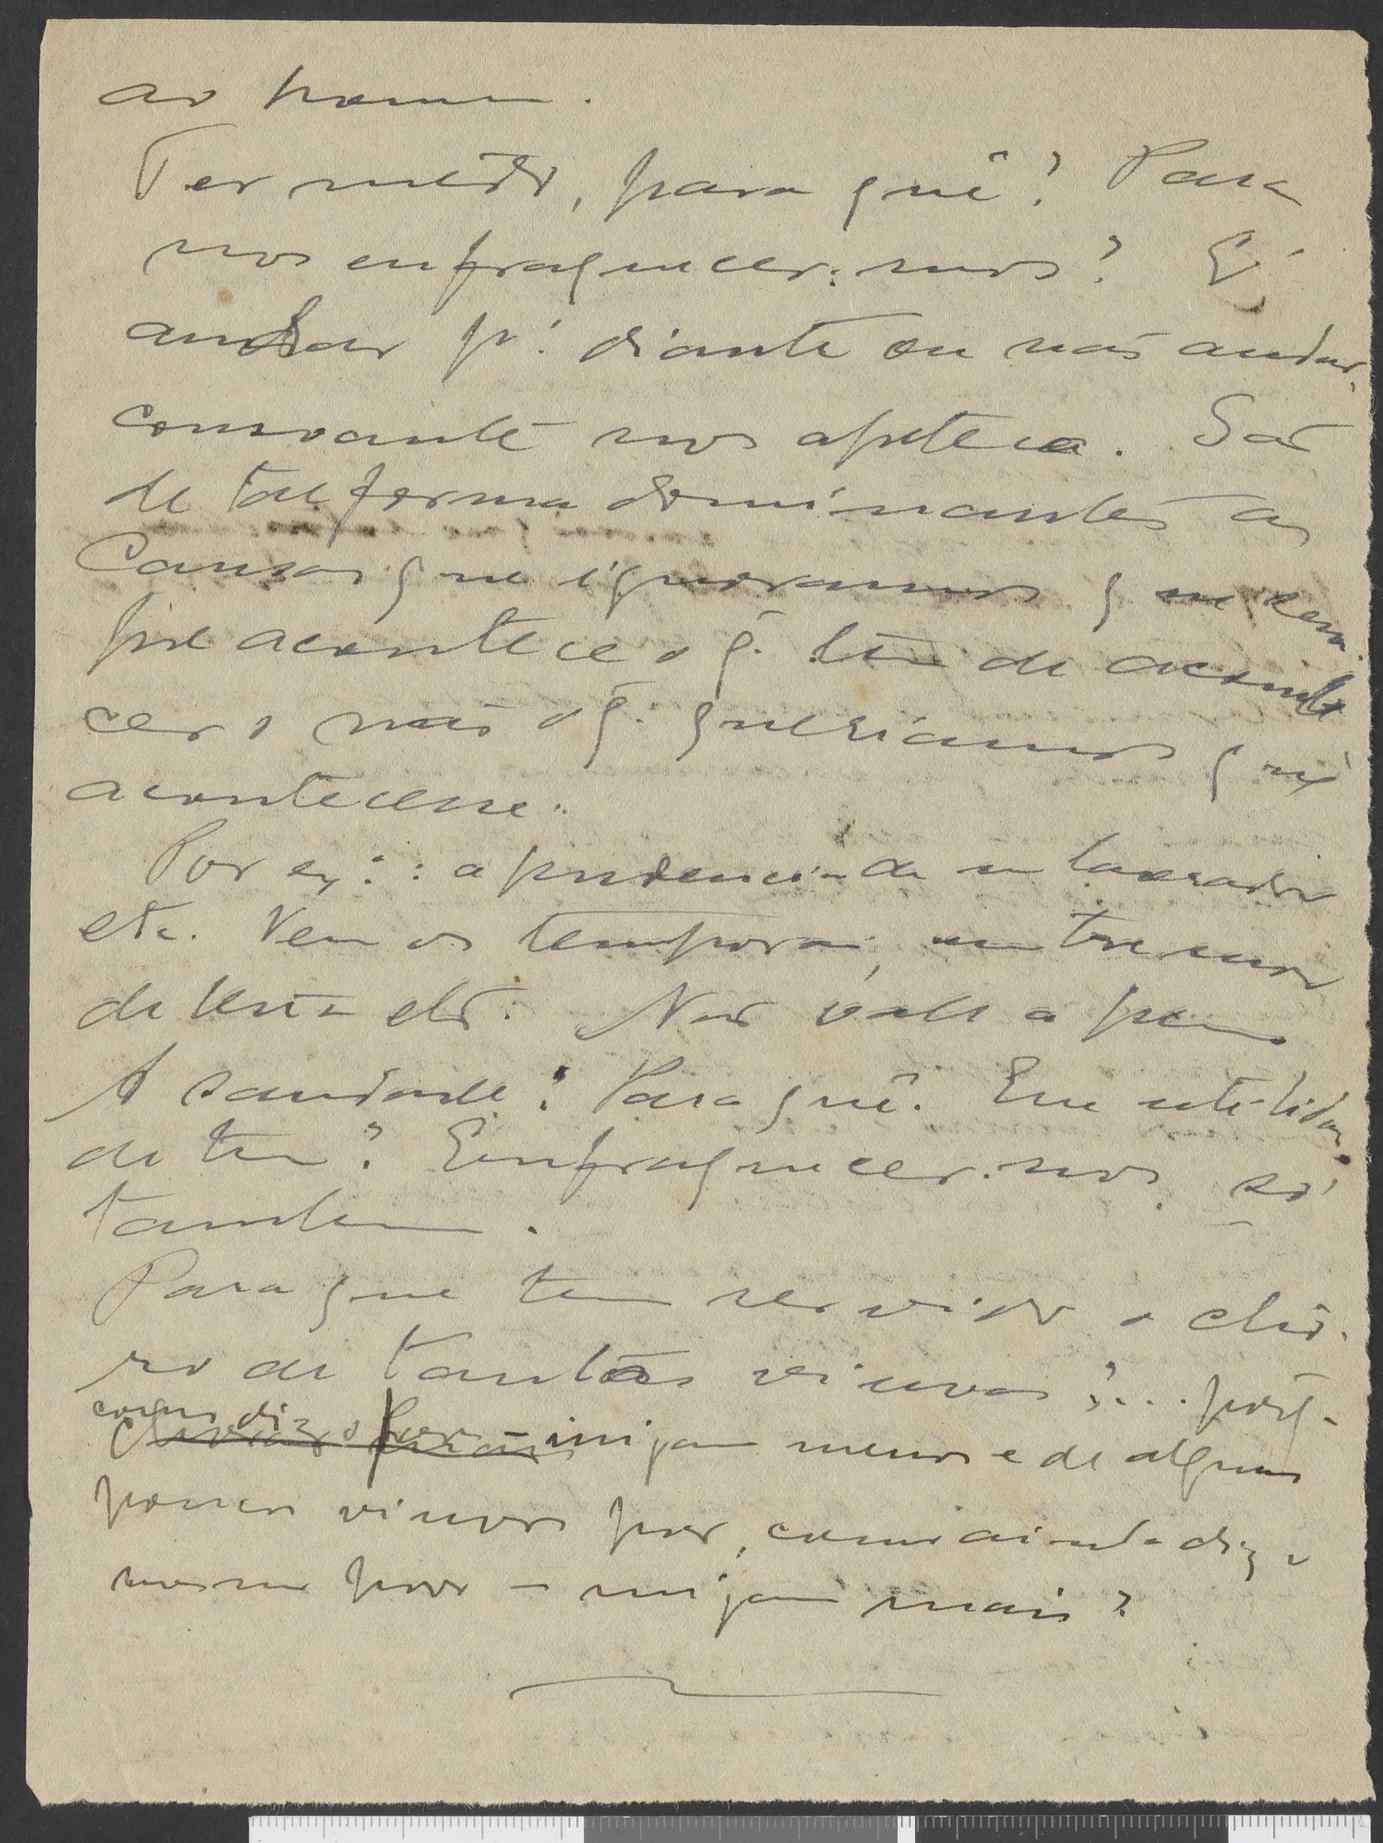 ao homem.
Ter mêdo, para quê? Para
nos enfraquecer-mos? É
andar p'. diante ou não andar,
consoante nos apeteça. São
de tal forma dominantes as
Causas que ignoramos que sem-
pre acontece o q. tem de aconte
cer e não o q. queriamos que
acontecesse.
Por ex: : a prudencia de um lavrador
etc. Vem os temporais, um tremor
de terra etc. Não vale a pena
A saudade? Para quê. Que utilida-
de tem? Enfraquecer-nos só
tambem.
Para que tem servido o chô-
ro de tantas viuvas?... porq.
como diz o povo
– mijam menos e de alguns
poucos viuvos por, como ainda diz o
mesmo povo – mijam mais?